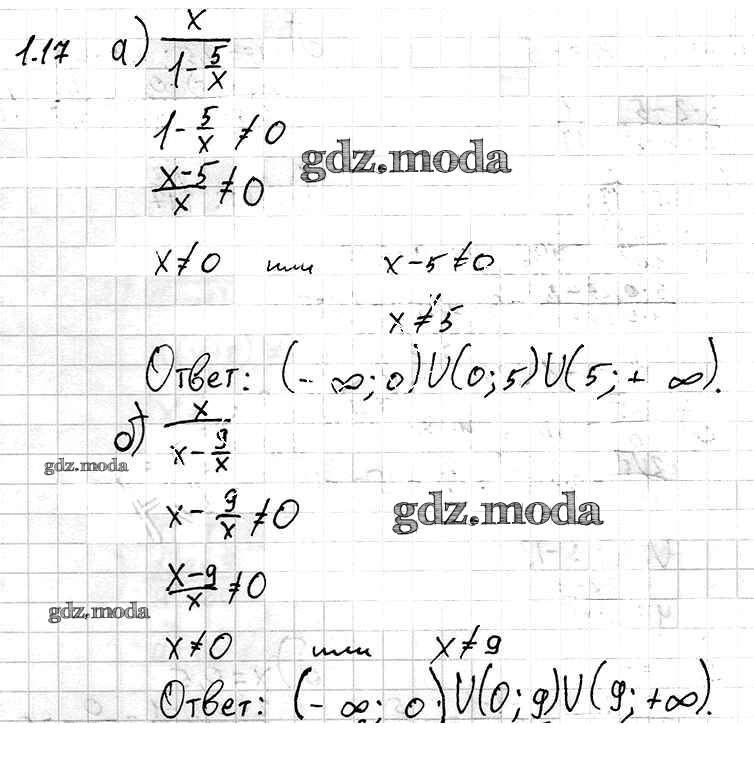 1.17 а) x/(1 - 5/x)
1 - 5/x ≠ 0
gdz.moda
(x-5)/x ≠ 0
x ≠ 0 или x - 5 ≠ 0
x ≠ 5
Ответ: (-∞; 0) U (0; 5) U (5; + ∞).
б) x/(x - 9/x)
gdz.moda
x - 9/x ≠ 0
gdz.moda
(x-9)/x ≠ 0
gdz.moda
x ≠ 0 или x ≠ 9
Ответ: (-∞; 0) U (0; 9) U (9; +∞).